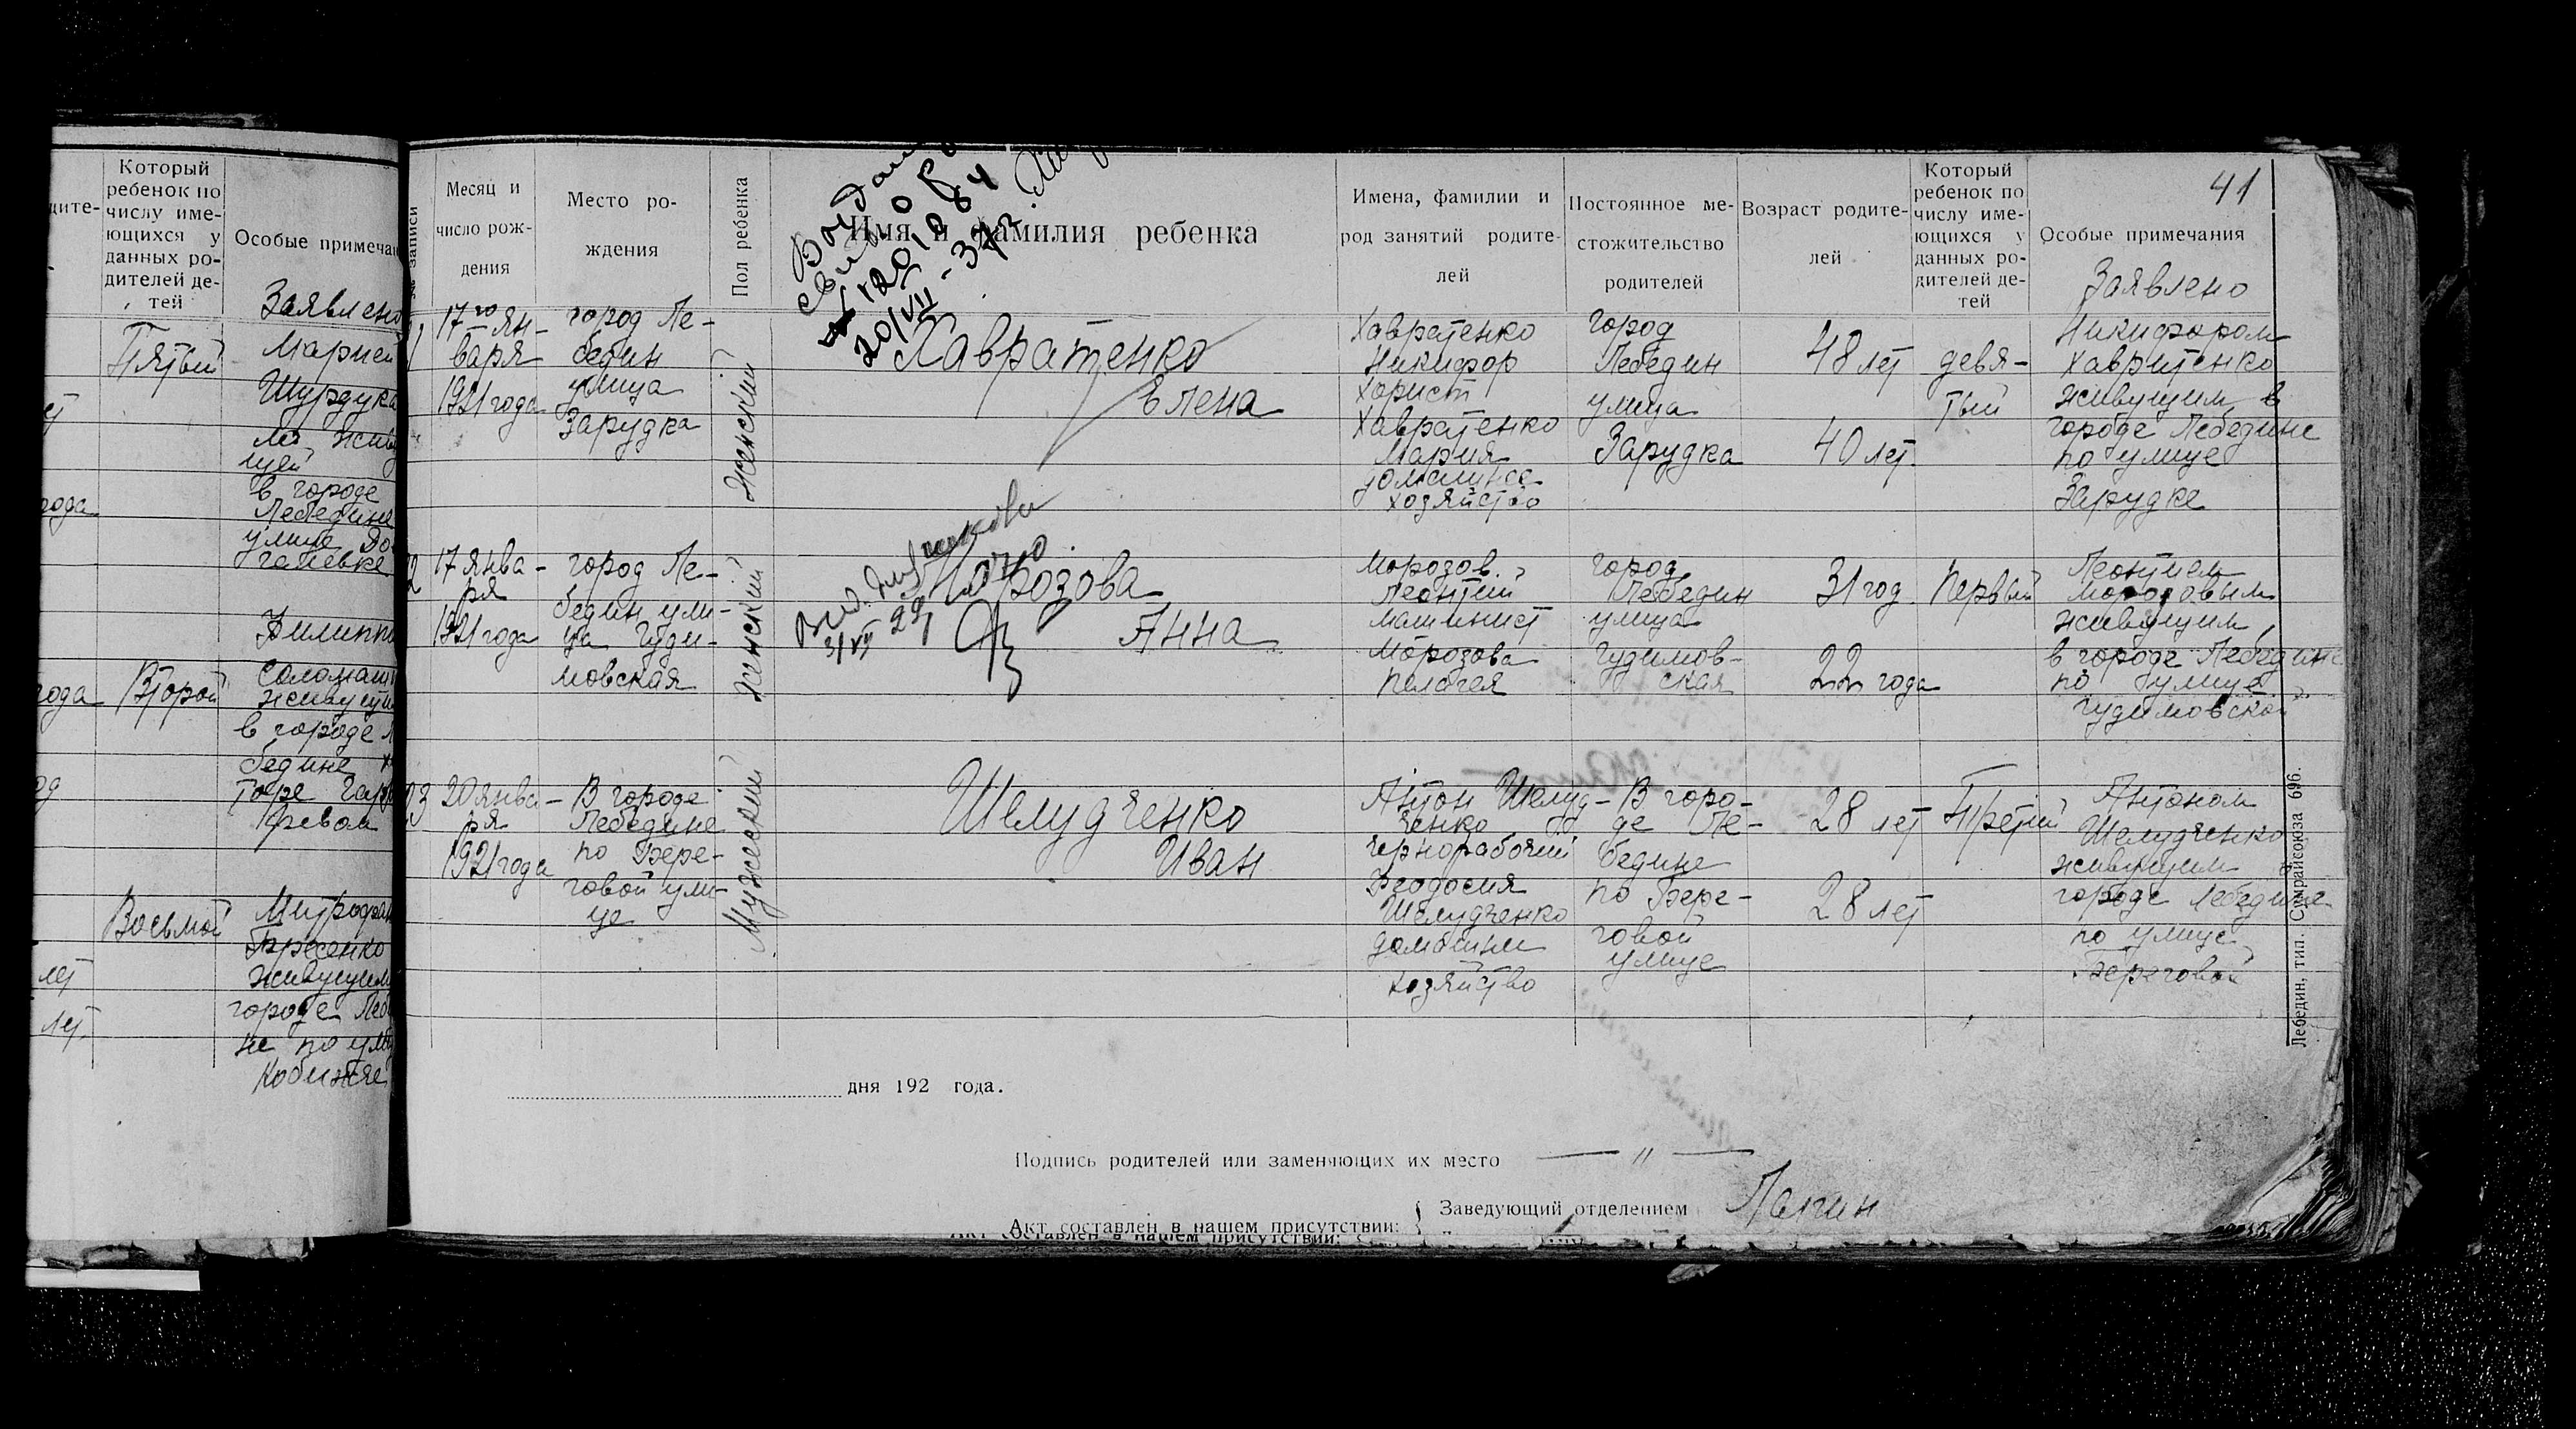 Который
ребенок по
числу име-
ющихся у
данных ро-
дителей де-
тей
Особые примеча
Заявлено
Пятый
Марией
Шурдука
живу
щей
в городе
Лебедине
улице
гаевке
года
Филиппо
Второй
живущи
в городе
бедине
Восьмой
Митрофан
живущим
городе Леб
не по ули
лет
лет
41
записи
Месяц и
число рож-
дения
Место ро-
ждения
Пол ребенка
Имя и фамилия ребенка
Имена, фамилии и
род занятий родите-
лей
Постоянное ме-
стожительство
родителей
Возраст родите-
лей
Который
ребенок по
числу име-
ющихся у
данных ро-
дителей де-
тей
Особые примечания
Заявлено
1
17го ян-
варя
1921 года
город Ле-
бедин
улица
Зарудка
Женский
Хавратенко
Елена
Хавратенко
Никифор
Хорист
Хавратенко
Мария
домашнее
хозяйство
город
Лебедин
улица
Зарудка
48 лет
40 лет
девя-
тый
Никифором
Хавратенко
живущим в
городе Лебедине
по улице
Зарудке
2
17 янва-
ря
1921 года
город Ле-
бедин ули-
ца Гуди-
мовская
Женский
Морозова
Анна
Морозов
Леонтий
машинист
Морозова
Пелагея
город
Лебедин
улица
Гудимов-
ская
31 год
22 года
Первый
Леонтием
Морозовым
живущим
в городе Лебедине
по улице
Гудимовской
3
20 янва-
ря
1921 года
В городе
Лебедине
по Бере-
говой ули-
це
Мужеский
Шелудченко
Иван
Антон Шелуд-
ченко
чернорабочий
Феодосия
Шелудченко
домашнее
хозяйство
В горо-
де Ле-
бедине
по Бере-
говой
улице
28 лет
28 лет
Третий
Антоном
Шелудченко
живущим в
городе Лебедине
по улице
Береговой
Лебедин, тип. Сумрайсоюза 696.
дня 192 года.
Подпись родителей или заменяющих их место — " —
Акт составлен в нашем присутствии:
Заведующий отделением